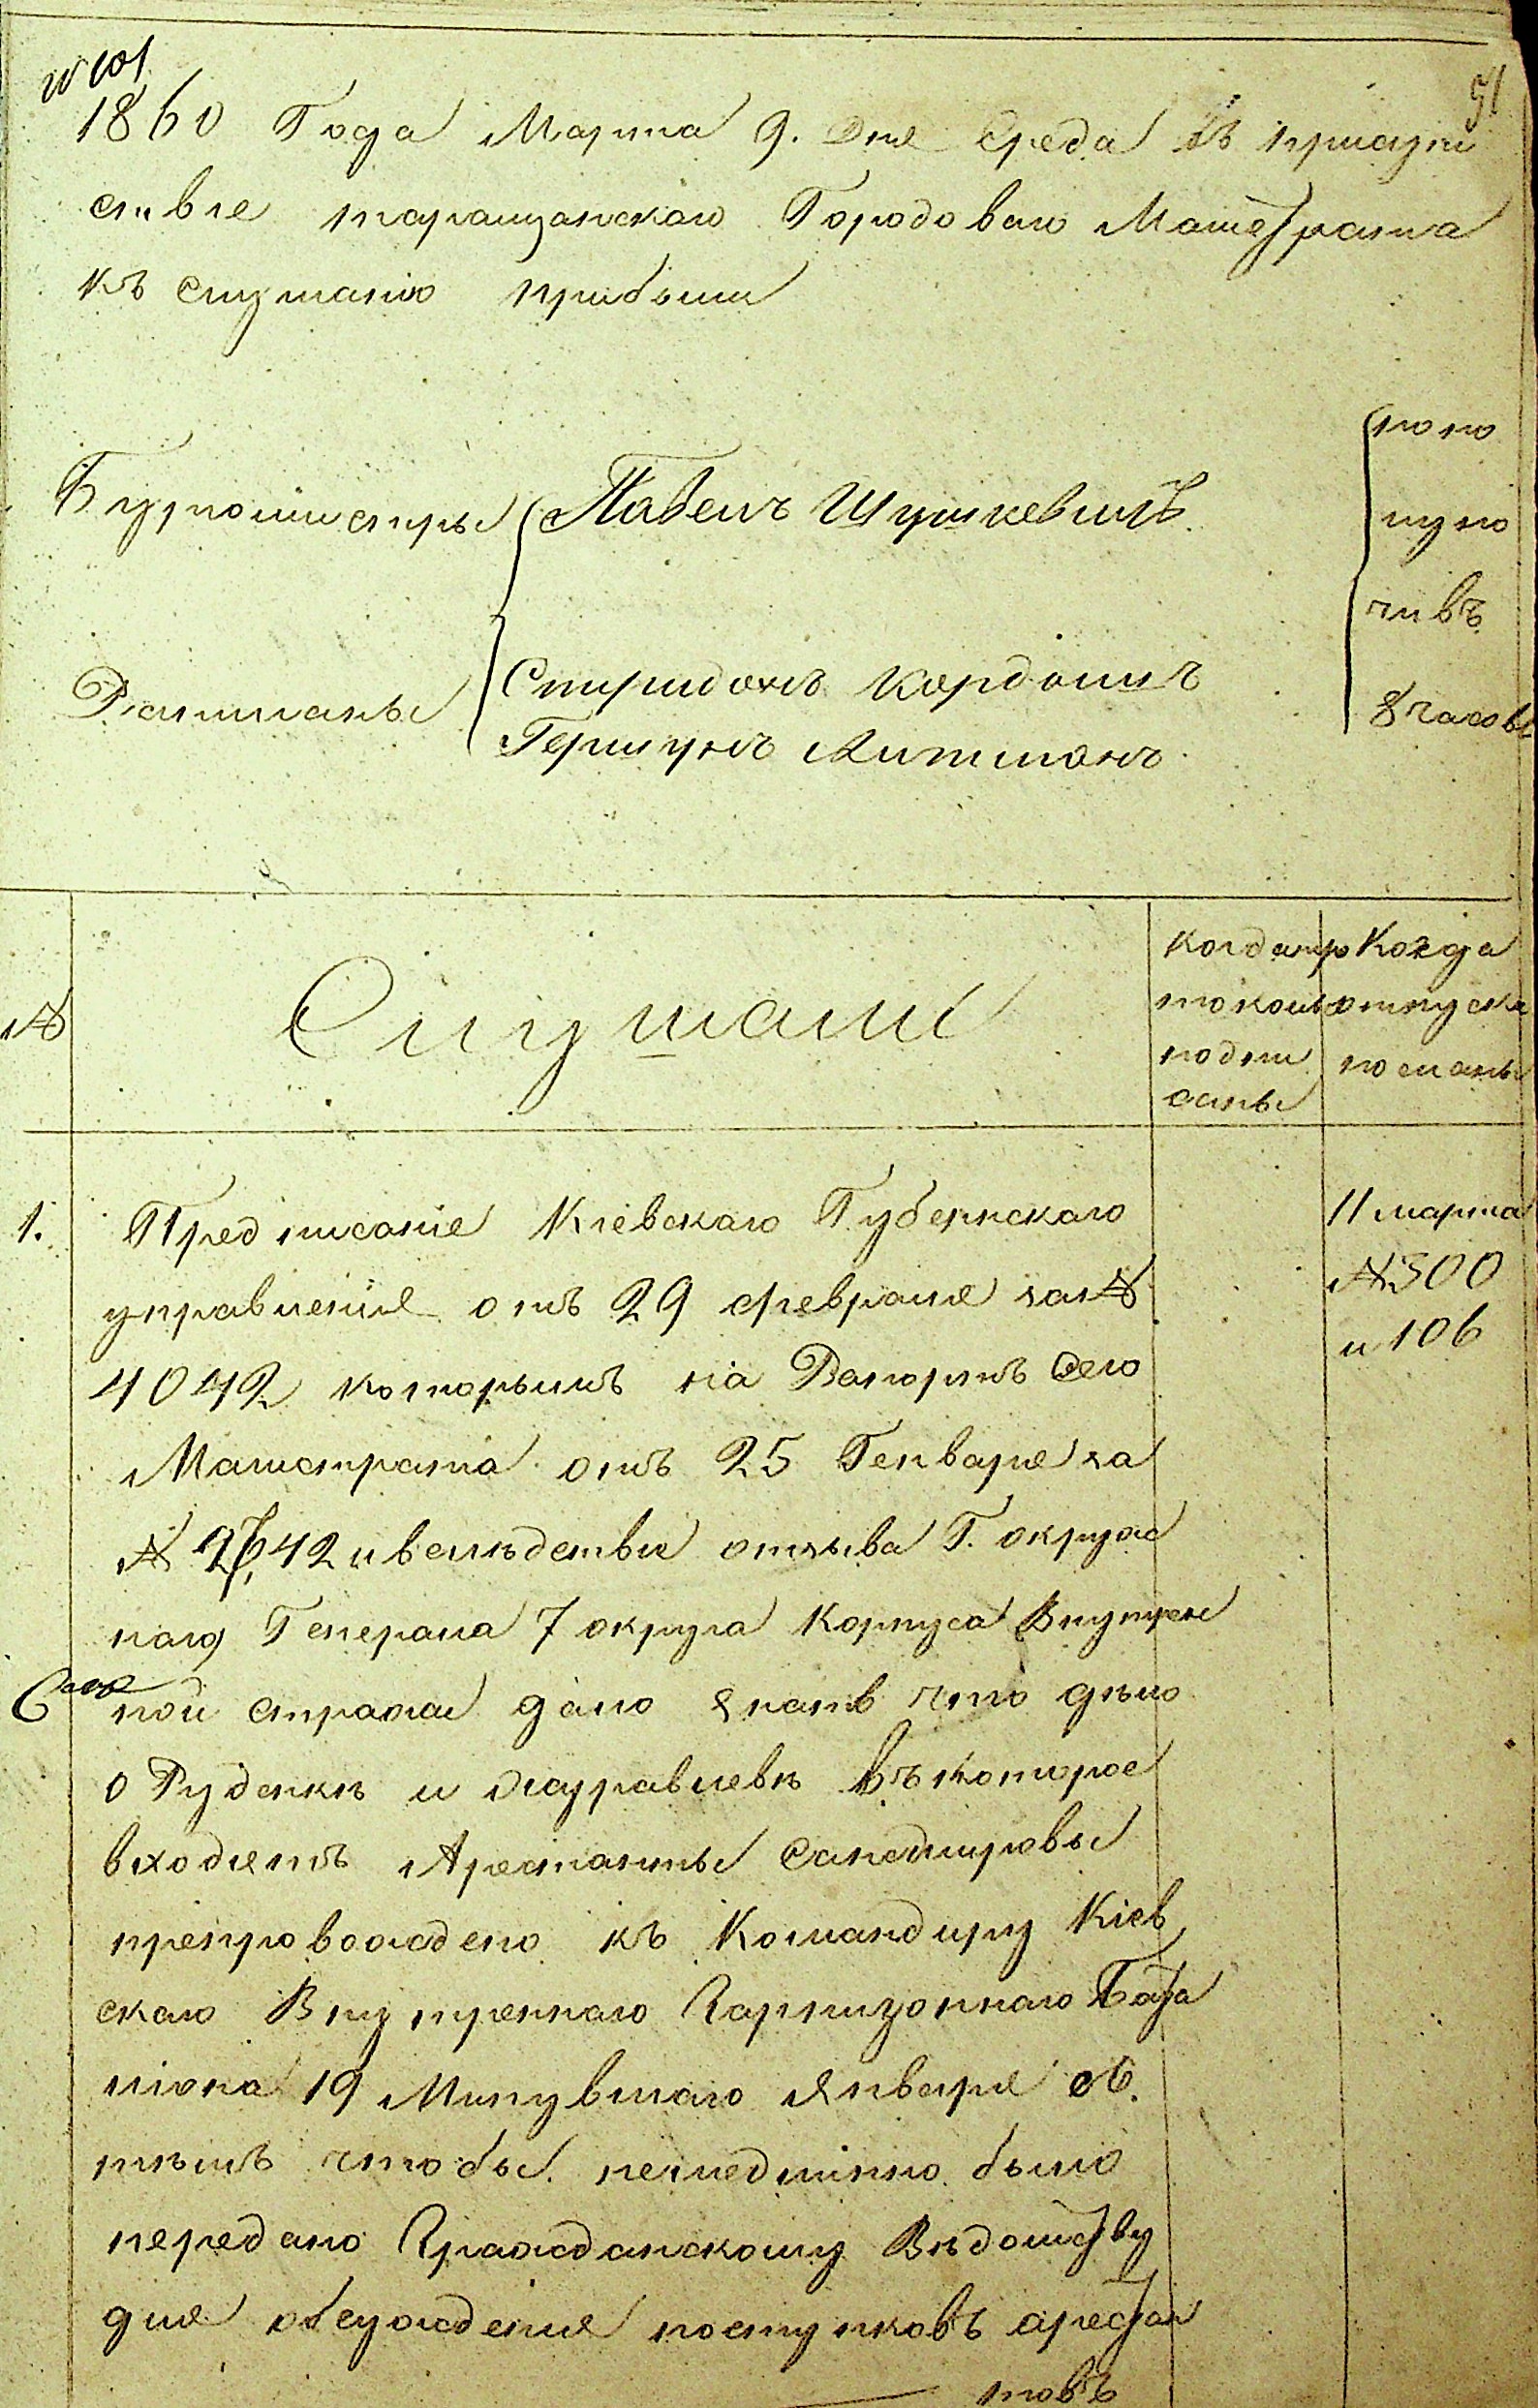 1860 Года Марта 9. Дня Среда Въ присут
ствіе таращанскаго Городоваго Магистрата
къ слушанію прибыли
Бургомистры Павелъ Шушкевичъ.
Ратманы Спиридонъ Кордонитъ
Гершунъ Литманъ
по по
лу но
чивъ
8 часовъ
№
Слушали
Когда про
токолы
подпи
саны
Когда
отпуски
посланы
1. Предписаніе Кіевскаго Губернскаго
управленія отъ 29 февраля за №
4042 которымъ на Рапортъ сего
Магистрата отъ 25 Генваря за
№ 42 и вслѣдствіи отзыва Г. окруж
наго Генерала 7 округа Корпуса Внутрен
ной стражи дано знать что дѣло
о Руденкѣ и Журавлевѣ въ которое
входятъ Арестанты Сандомировы
препровождено къ Командиру Кіев
скаго Внутреннаго Гарнизоннаго Бата
ліона 19 Минувшаго Января съ
тѣмъ чтобы немедлѣнно было
передано Гражданскому Вѣдомству
для обсужденія поступковъ арестан
товъ
11 марта
№ 500
и 106